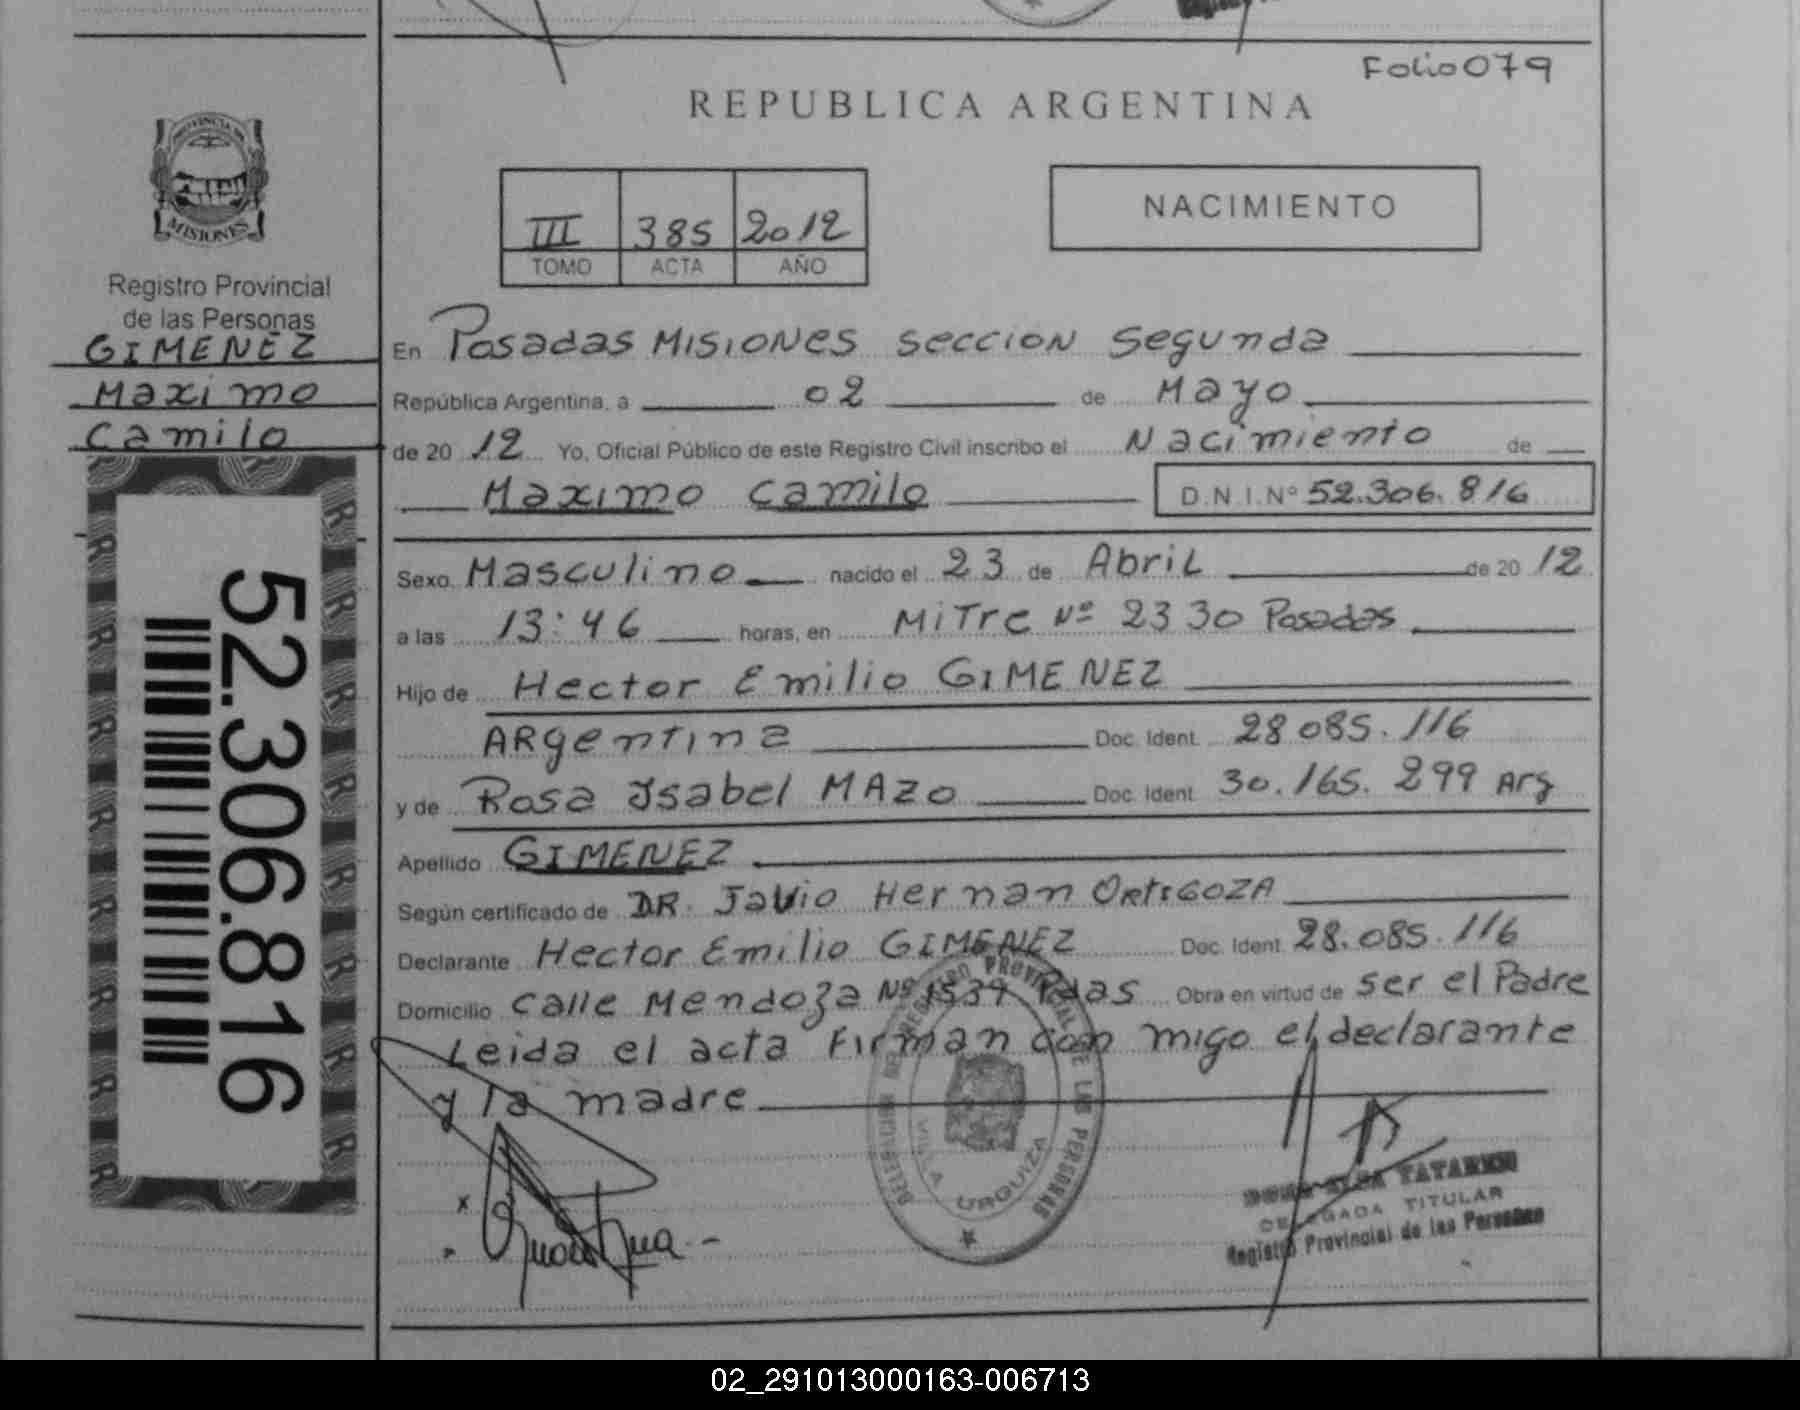 Folio 079
REPUBLICA ARGENTINA
PROVINCIA DE
MISIONES
III 385 2012
TOMO ACTA AÑO
NACIMIENTO
Registro Provincial
de las Personas
GIMENEZ
Maximo
Camilo
52.306.816
En Posadas Misiones seccion segunda
República Argentina, a 02 de Mayo
de 2012 Yo, Oficial Público de este Registro Civil inscribo el Nacimiento de
Maximo Camilo D.N.I. Nº 52.306.816
Sexo Masculino nacido el 23 de Abril de 2012
a las 13:46 horas, en Mitre Nº 2330 Posadas
Hijo de Hector Emilio GIMENEZ
Argentina Doc. Ident. 28.085.116
y de Rosa Isabel MAZO Doc. Ident. 30.165.299 Arg
Apellido GIMENEZ
Según certificado de DR. Hernan ORTIGOZA
Declarante Hector Emilio GIMENEZ Doc. Ident. 28.085.116
Domicilio Calle Mendoza Nº Pdas Obra en virtud de ser el Padre
Leida el acta Firman con migo el declarante
y la madre
DELEGACION DEL REGISTRO PROVINCIAL DE LAS PERSONAS
VILLA URQUIZA
TATAREN
DELEGADA TITULAR
Registro Provincial de las Personas
02_291013000163-006713